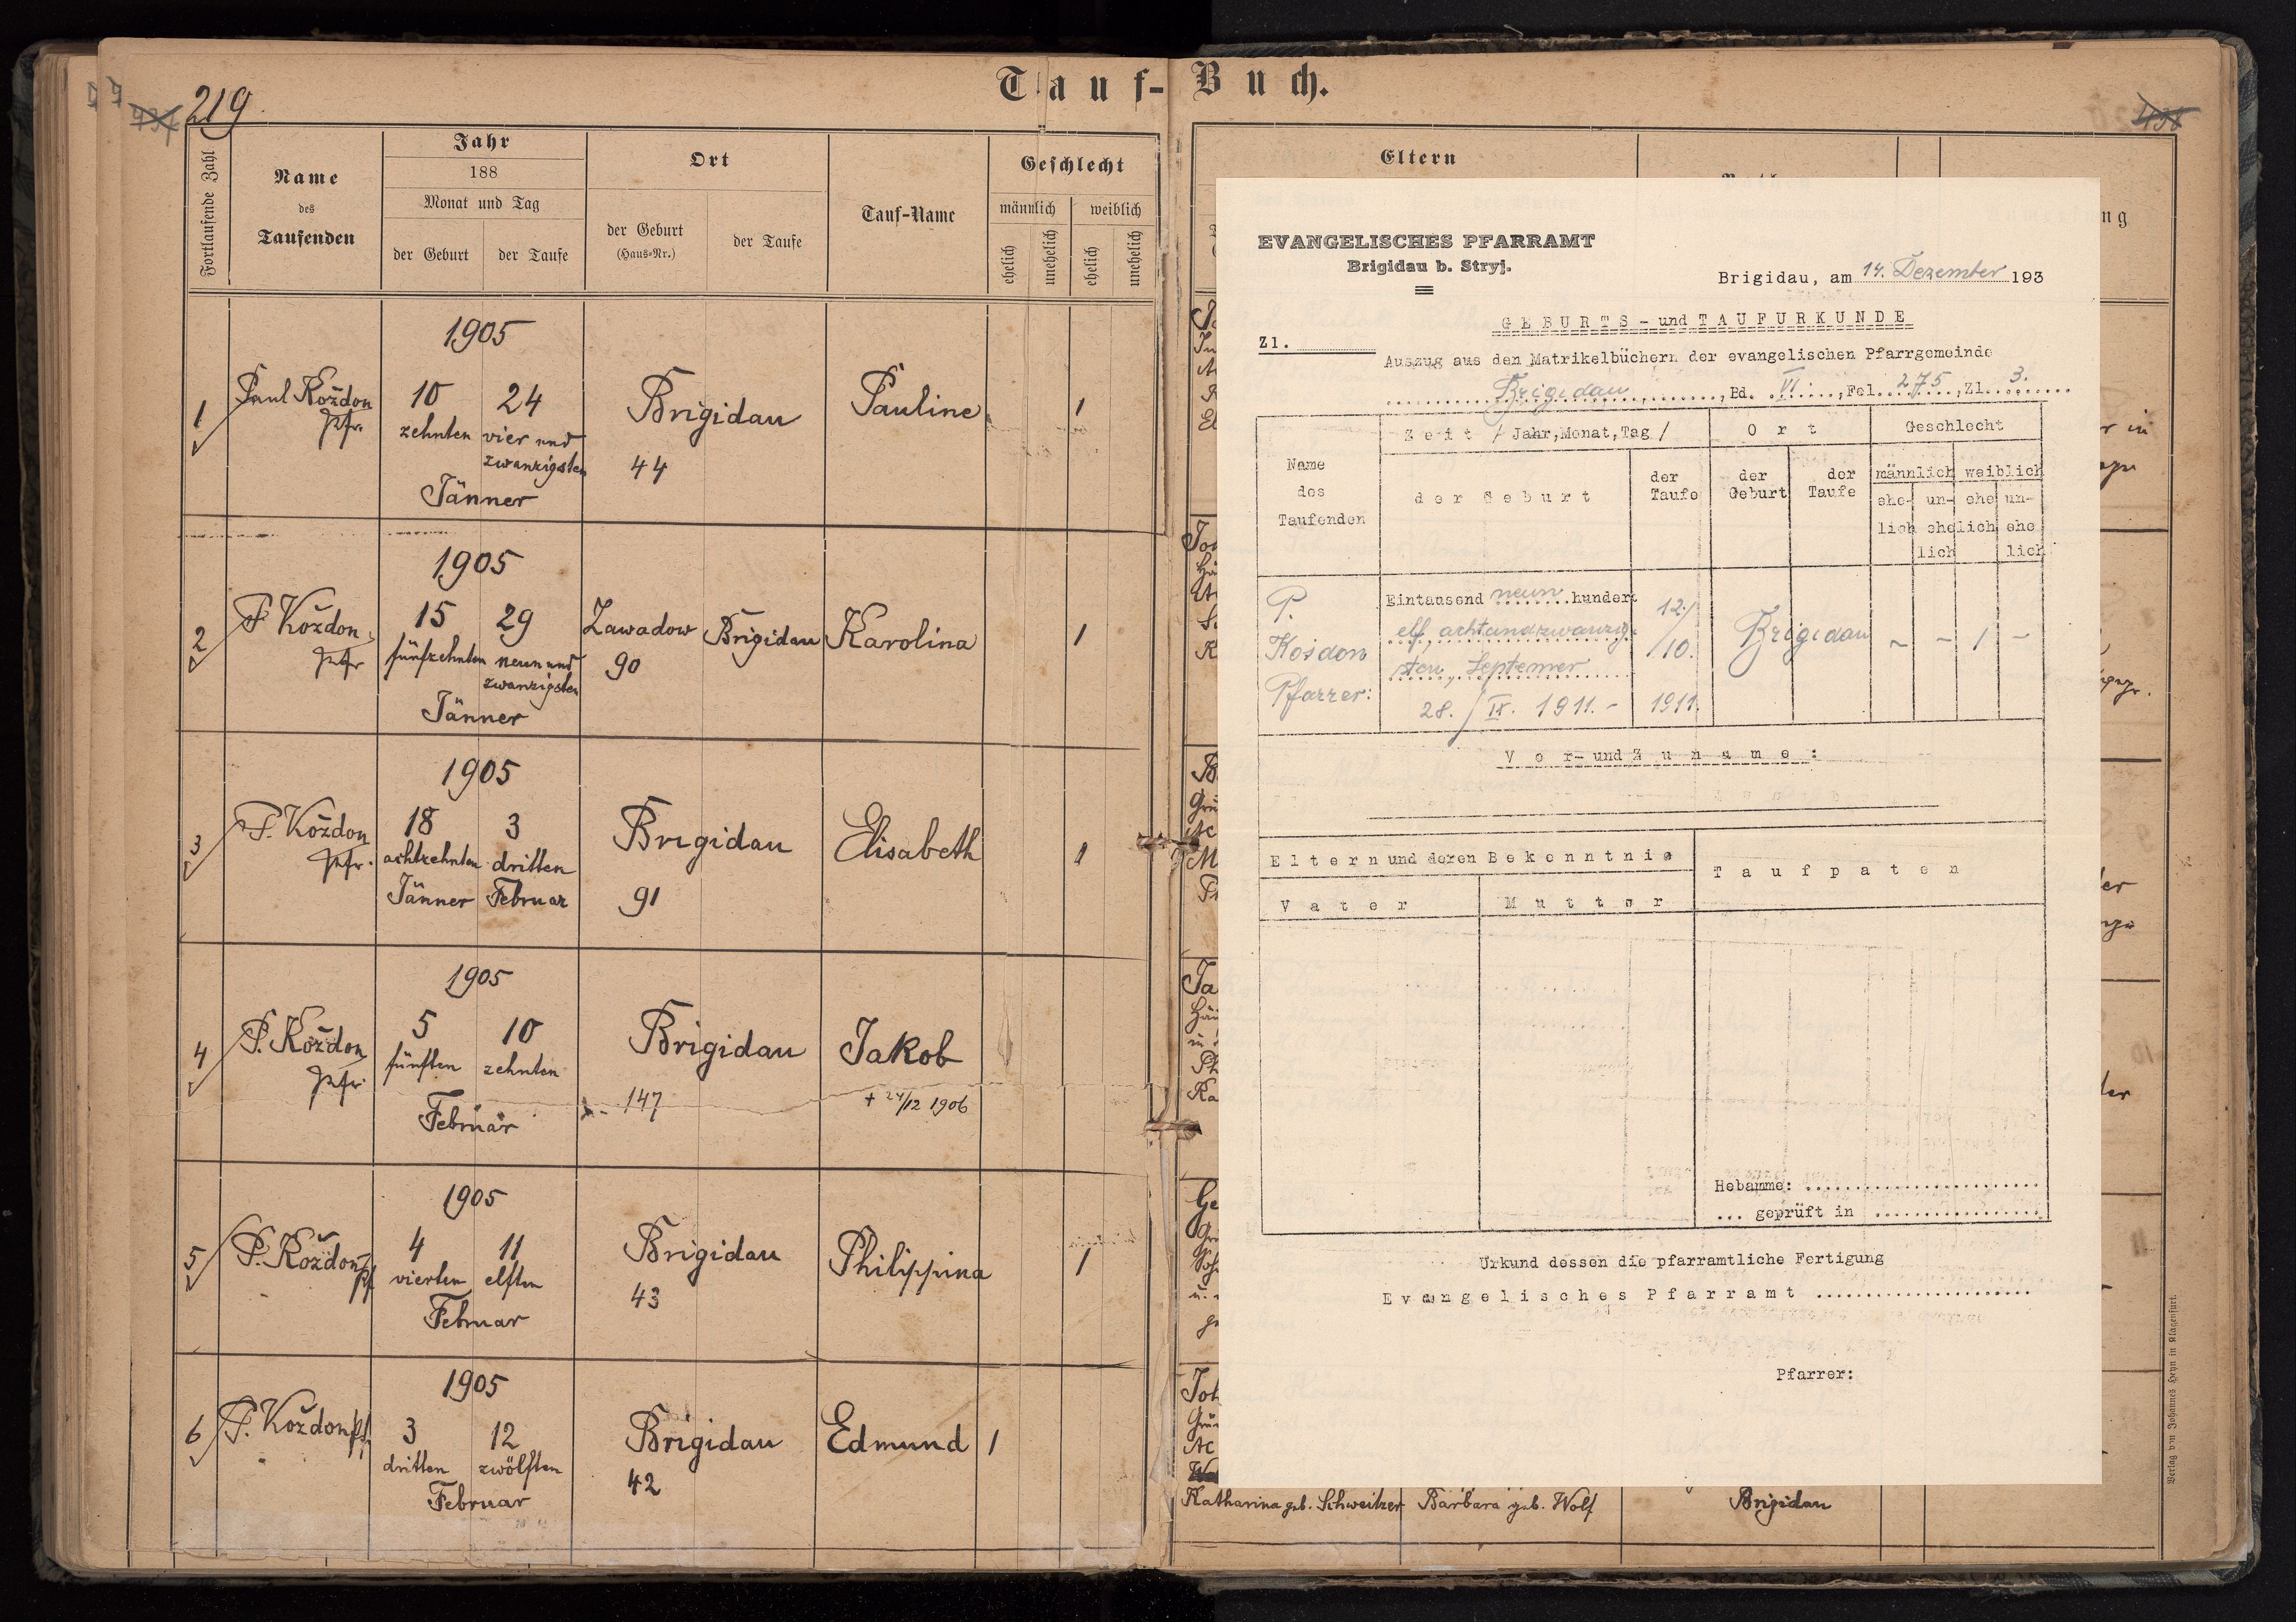 219
Tauf-Buch.
Fortlaufende Zahl
Name
des
Taufenden
Jahr
188
Monat und Tag
der Geburt
der Taufe
Ort
der Geburt
(Haus-Nr.)
der Taufe
Tauf-Name
Geschlecht
männlich
weiblich
ehelich
unehelich
ehelich
unehelich
Eltern
1905
1
Paul Koždon
Pfr.
10
24
zehnten
vier und
zwanzigsten
Jänner
Brigidau
44
Pauline
1
1905
2
P. Koždon
Pfr
15
29
fünfzehnten
neun und
zwanzigsten
Jänner
Zawadow
90
Brigidau
Karolina
1
1905
3
P. Koždon
Pfr.
18
3
achtzehnten
dritten
Jänner
Februar
Brigidau
91
Elisabeth
1
1905
4
P. Koždon
Pfr.
5
10
fünften
zehnten
Februar
Brigidau
147
Jakob
+ 24/12 1906
1905
5
P. Koždon
Pf
4
11
vierten
elften
Februar
Brigidau
43
Philippina
1
1905
6
P. Koždon Pf
3
12
dritten
zwölften
Februar
Brigidau
42
Edmund
1
EVANGELISCHES PFARRAMT
Brigidau b. Stryj.
Brigidau, am 14. Dezember 193
GEBURTS- und TAUFURKUNDE
Zl.
Auszug aus den Matrikelbüchern der evangelischen Pfarrgemeinde
Brigidau, Bd. VI, Fol. 275, Zl. 3.
Name
des
Taufenden
Zeit / Jahr, Monat, Tag /
der Geburt
der
Taufe
Ort
der
Geburt
der
Taufe
Geschlecht
männlich weiblich
ehe- un- ehe un-
lich ehe lich ehe
lich lich
P.
Kosdon
Pfarrer:
Eintausend neun hundert
elf, achtundzwanzig-
sten, Septemer
28. / IX. 1911.-
12./
10.
1911.
Brigidau
- - 1 -
Vor- und Zuname:
Eltern und deren Bekenntnis
Vater
Mutter
Taufpaten
Hebamme:
... geprüft in
Urkund dessen die pfarramtliche Fertigung
Evangelisches Pfarramt
Pfarrer:
Katharina geb. Schweitzer
Barbara geb. Wolf
Brigidau
Verlag von Johannes Heyn in Klagenfurt.